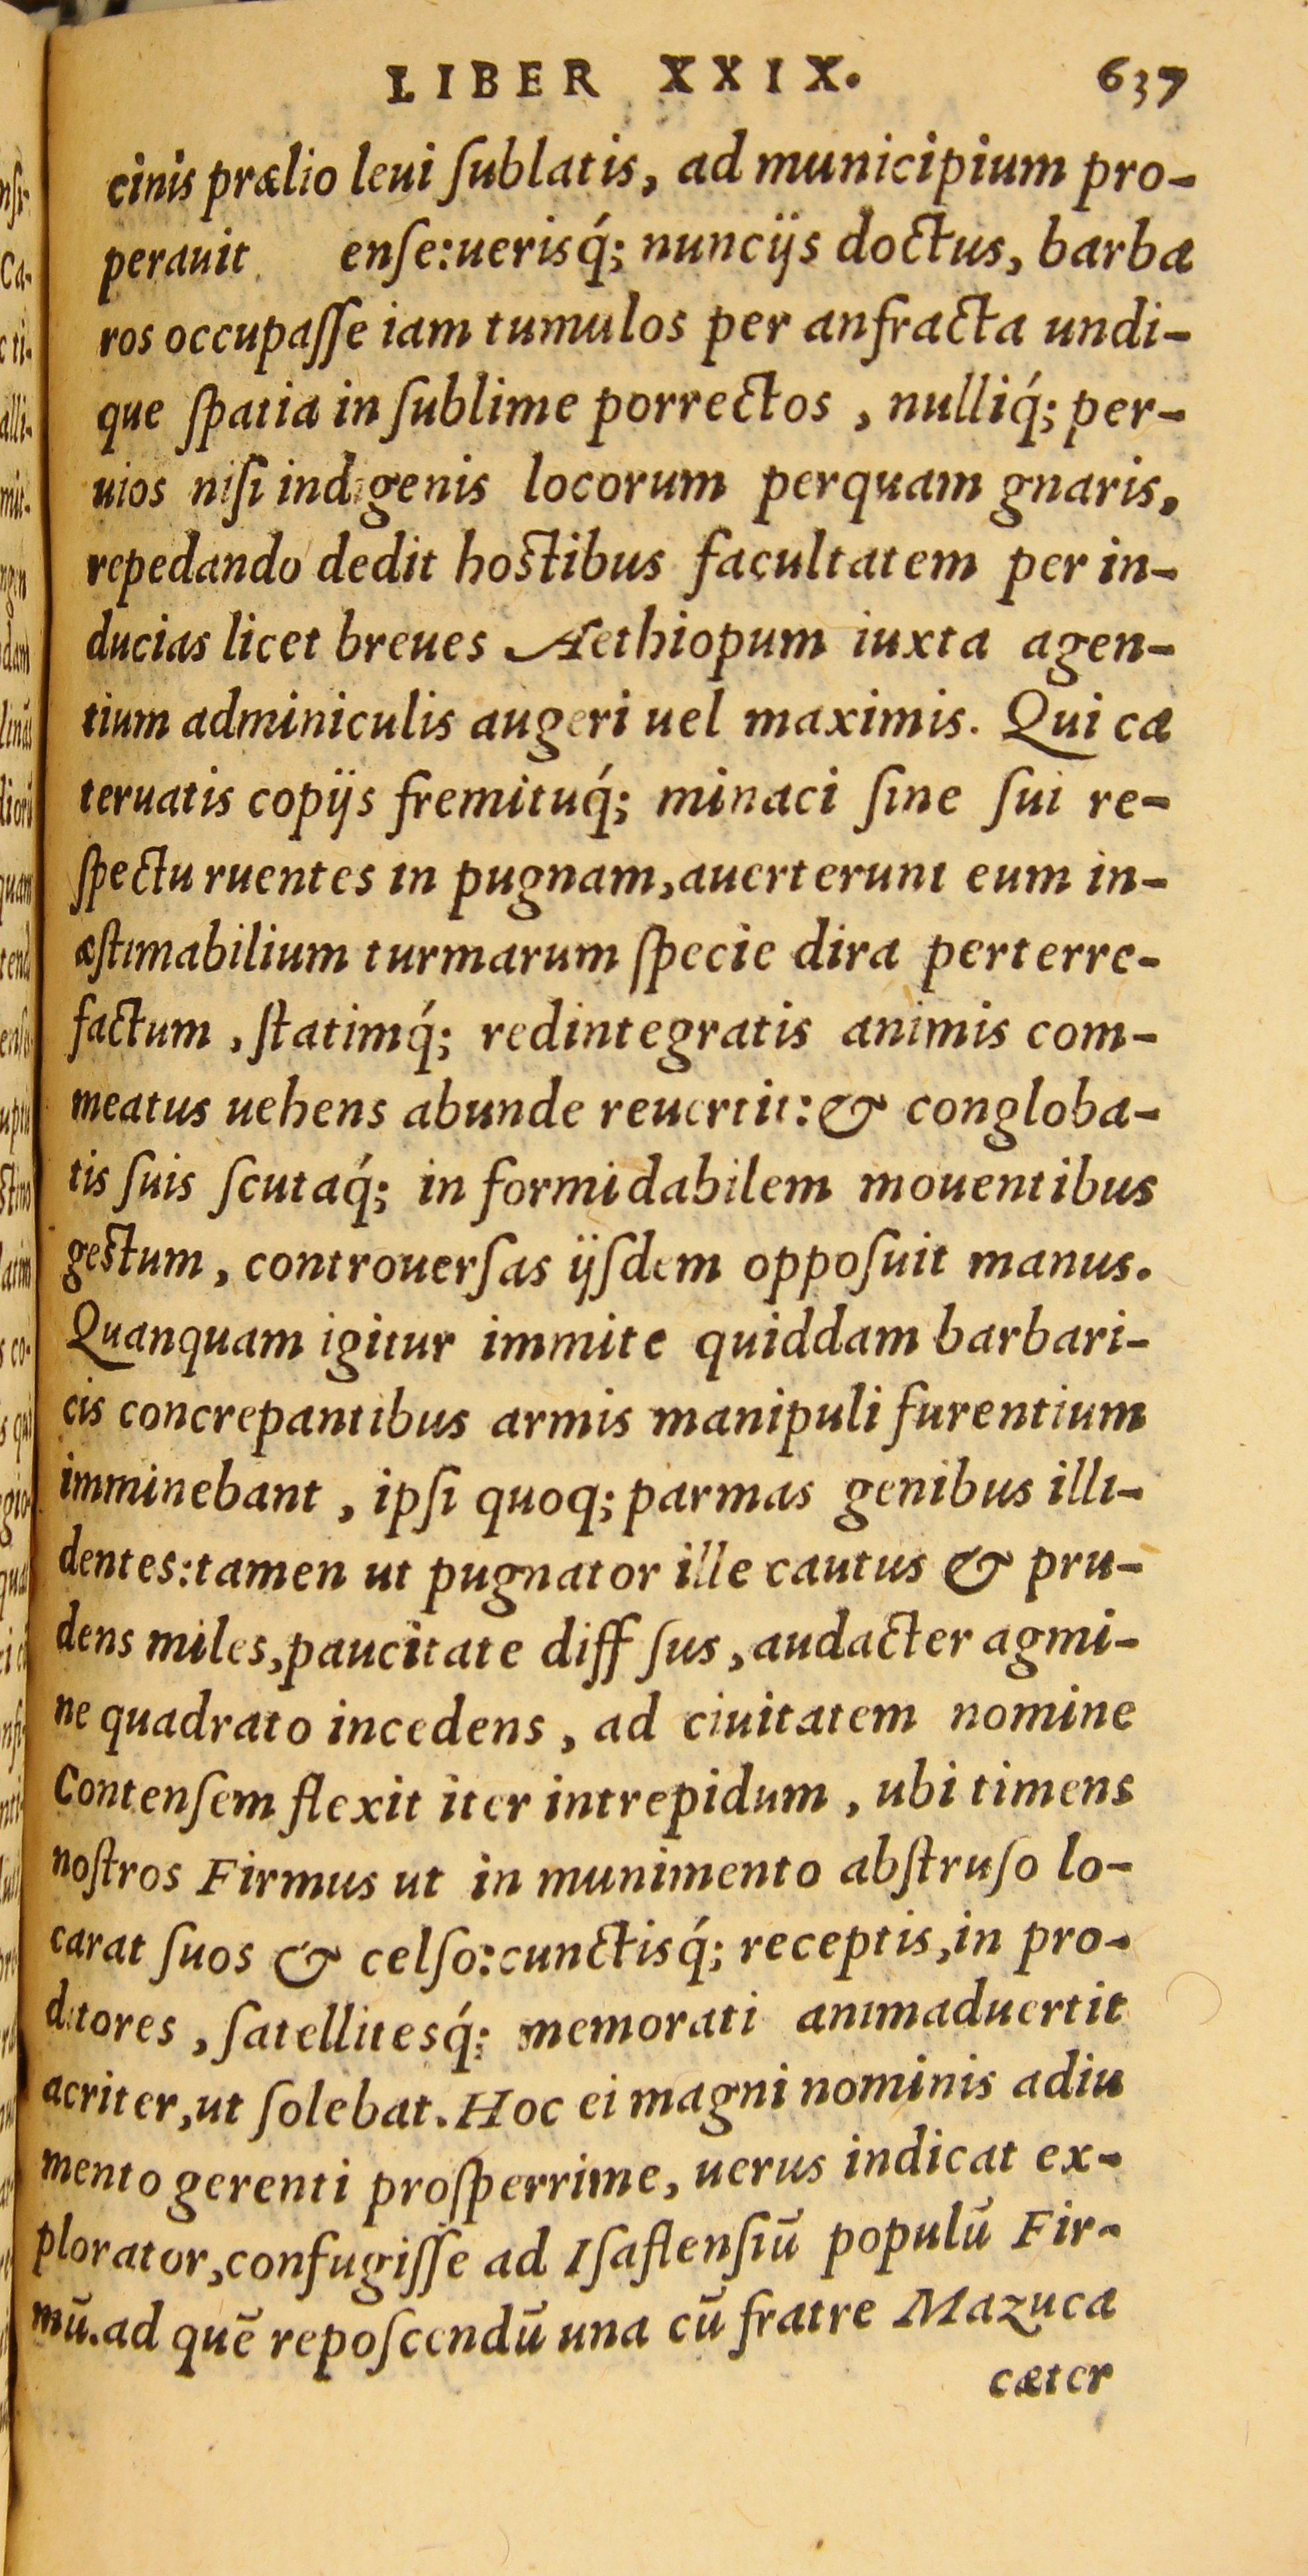 LIBER XXIX. 637
cinis prælio leui ſublatis, ad municipium pro-
perauit enſe:uerisq́; nuncijs doctus, barba
ros occupaſſe iam tumulos per anfracta undi-
que ſpatia in ſublime porrectos , nulliq́; per-
uios niſi indigenis locorum perquam gnaris,
repedando dedit hostibus facultatem per in-
ducias licet breues Aethiopum iuxta agen-
tium adminiculis augeri uel maximis. Qui ca
teruatis copijs fremituq́; minaci ſine ſui re-
ſpectu ruentes in pugnam,auerterunt eum in-
æſtimabilium turmarum ſpecie dira perterre-
factum , ſtatimq́; redintegratis animis com-
meatus uehens abunde reuertit:& congloba-
tis ſuis ſcutaq́; in formidabilem mouentibus
gestum, controuerſas ijſdem oppoſuit manus.
Quanquam igitur immite quiddam barbari-
cis concrepantibus armis manipuli furentium
imminebant , ipſi quoq; parmas genibus illi-
dentes:tamen ut pugnator ille cautus & pru-
dens miles,paucitate diff ſus , audacter agmi-
ne quadrato incedens , ad ciuitatem nomine
Contenſem flexit iter intrepidum , ubi timens
noſtros Firmus ut in munimento abſtruſo lo-
carat ſuos & celſo:cunctisq́; receptis,in pro-
ditores , ſatellitesq́; memorati animaduertit
acriter,ut ſolebat. Hoc ei magni nominis adiu
mento gerenti proſperrime, uerus indicat ex-
plorator,confugiſſe ad Iſaflenſiū populū Fir-
mū.ad quē repoſcendū una cū fratre Mazuca
cæter